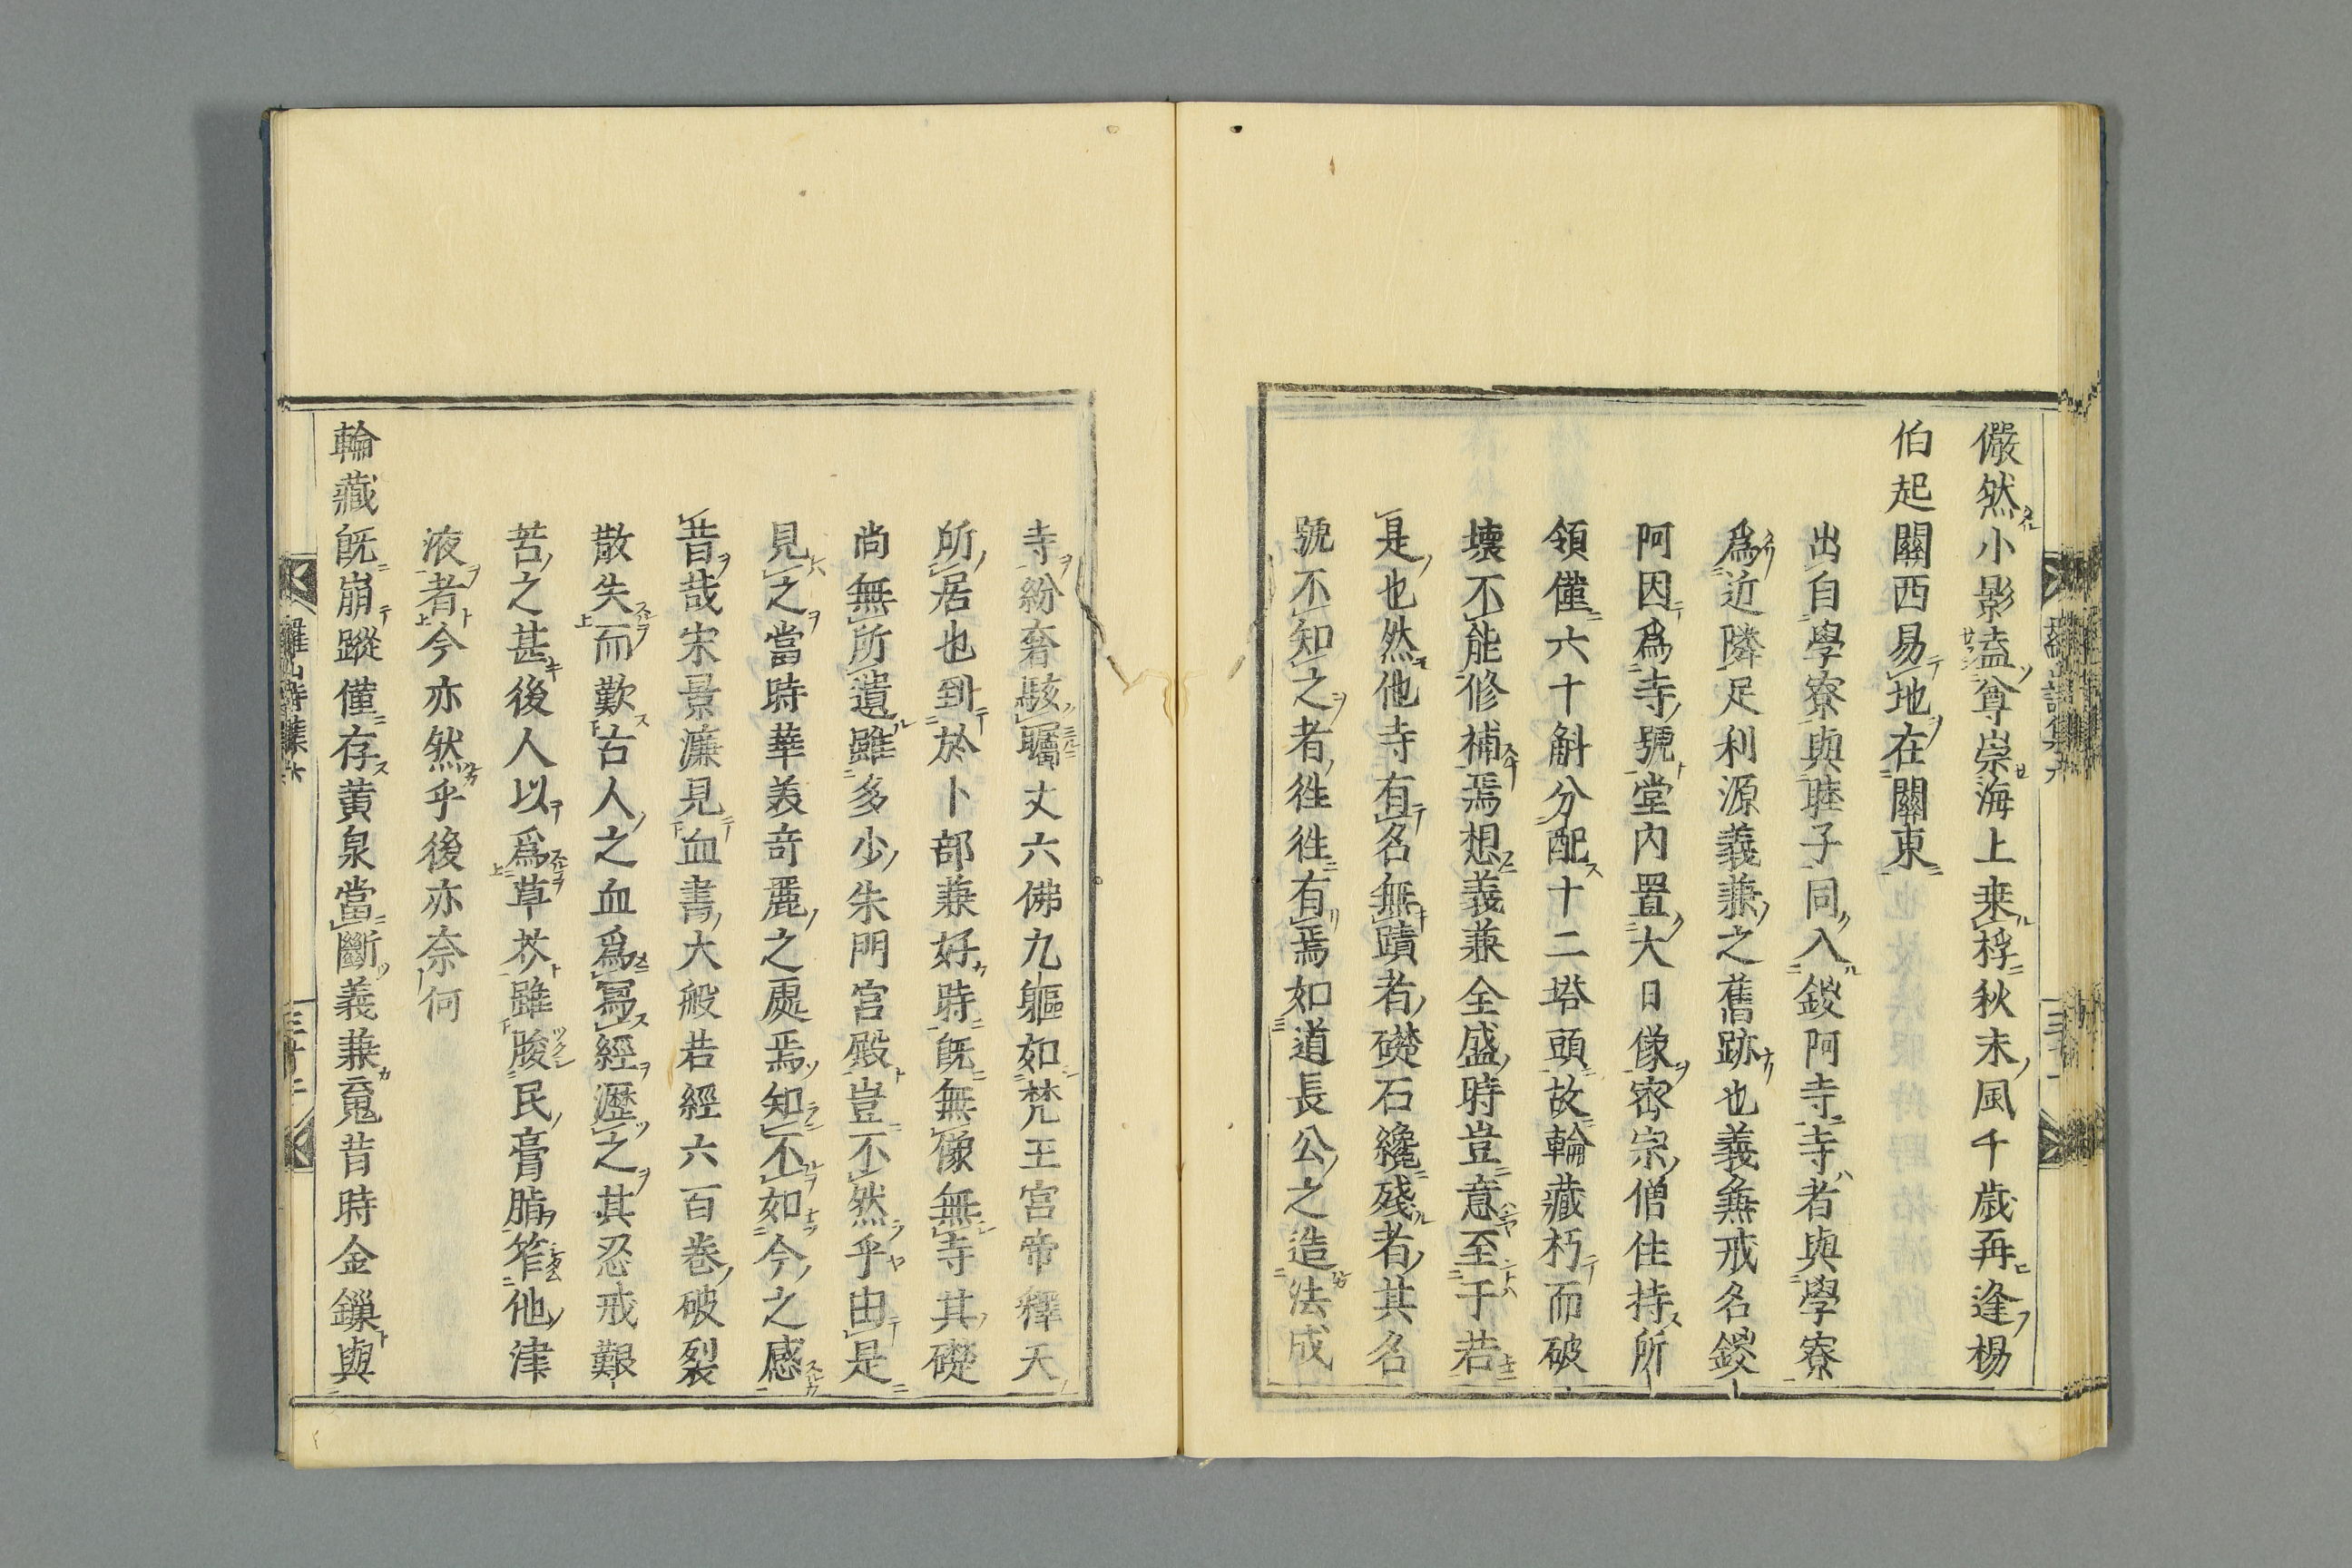 儼然小影盍尊崇海上乗桴秋末風千歳再逢楊
伯起關西易地在關東
出自學寮與睦子同入鑁阿寺寺者與學寮
爲近隣足利源義兼之舊跡也義兼戒名鑁
阿因爲寺號堂内置大日像密宗僧住持所
領僅六十斛分配十二塔頭故輪藏朽而破
壊不能修補焉想義兼全盛時豈意至于若
是也然他寺有名無蹟者礎石纔殘者其名
號不知之者徃徃有焉如道長公之造法成
寺紛奢駭矚丈六佛九軀如梵王宮帝釋天
所居也到於卜部兼好時既無像無寺其礎
尚無所遺雖多少朱門宮殿豈不然乎由是
見之當時華美奇麗之處焉知不如今之感
昔哉宋景濂見血書大般若經六百巻破裂
散失而歎古人之血爲冩經瀝之其忍戒艱
苦之甚後人以爲草芥雖朘民膏脂笮他津
液者今亦然乎後亦奈何
輪藏既崩蹤僅存黄泉當斷義兼䰟昔時金鏁與
羅山詩集六
三十一
羅山詩集六
三十二